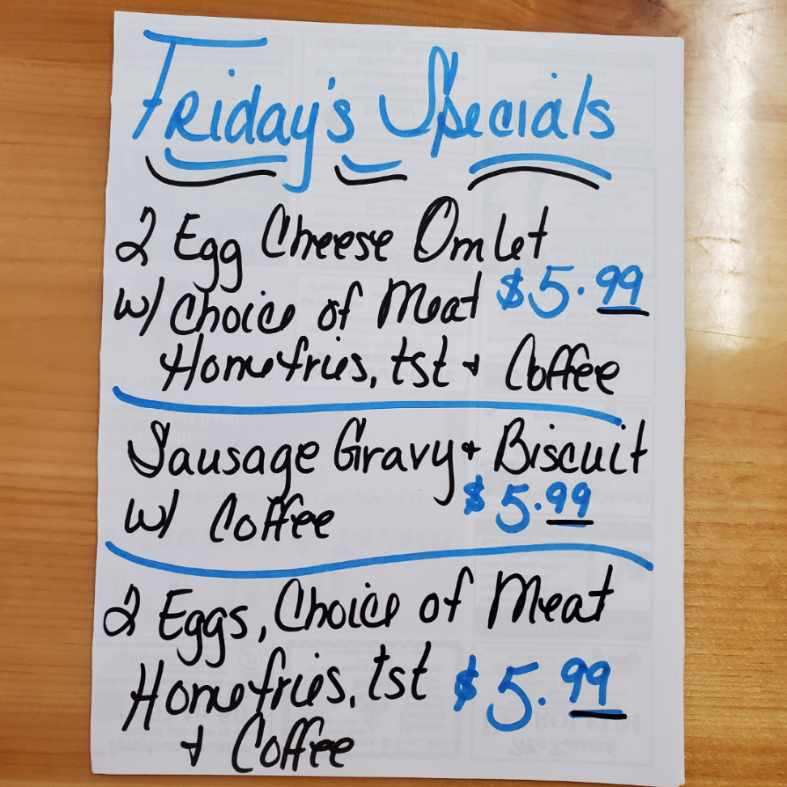 Friday's Specials
2 Egg Cheese Omlet
w/ Choice of Meat $5.99
Homefries, tst + Coffee
Sausage Gravy + Biscuit
w/ Coffee $5.99
2 Eggs, Choice of Meat
Homefries, tst $5.99
+ Coffee